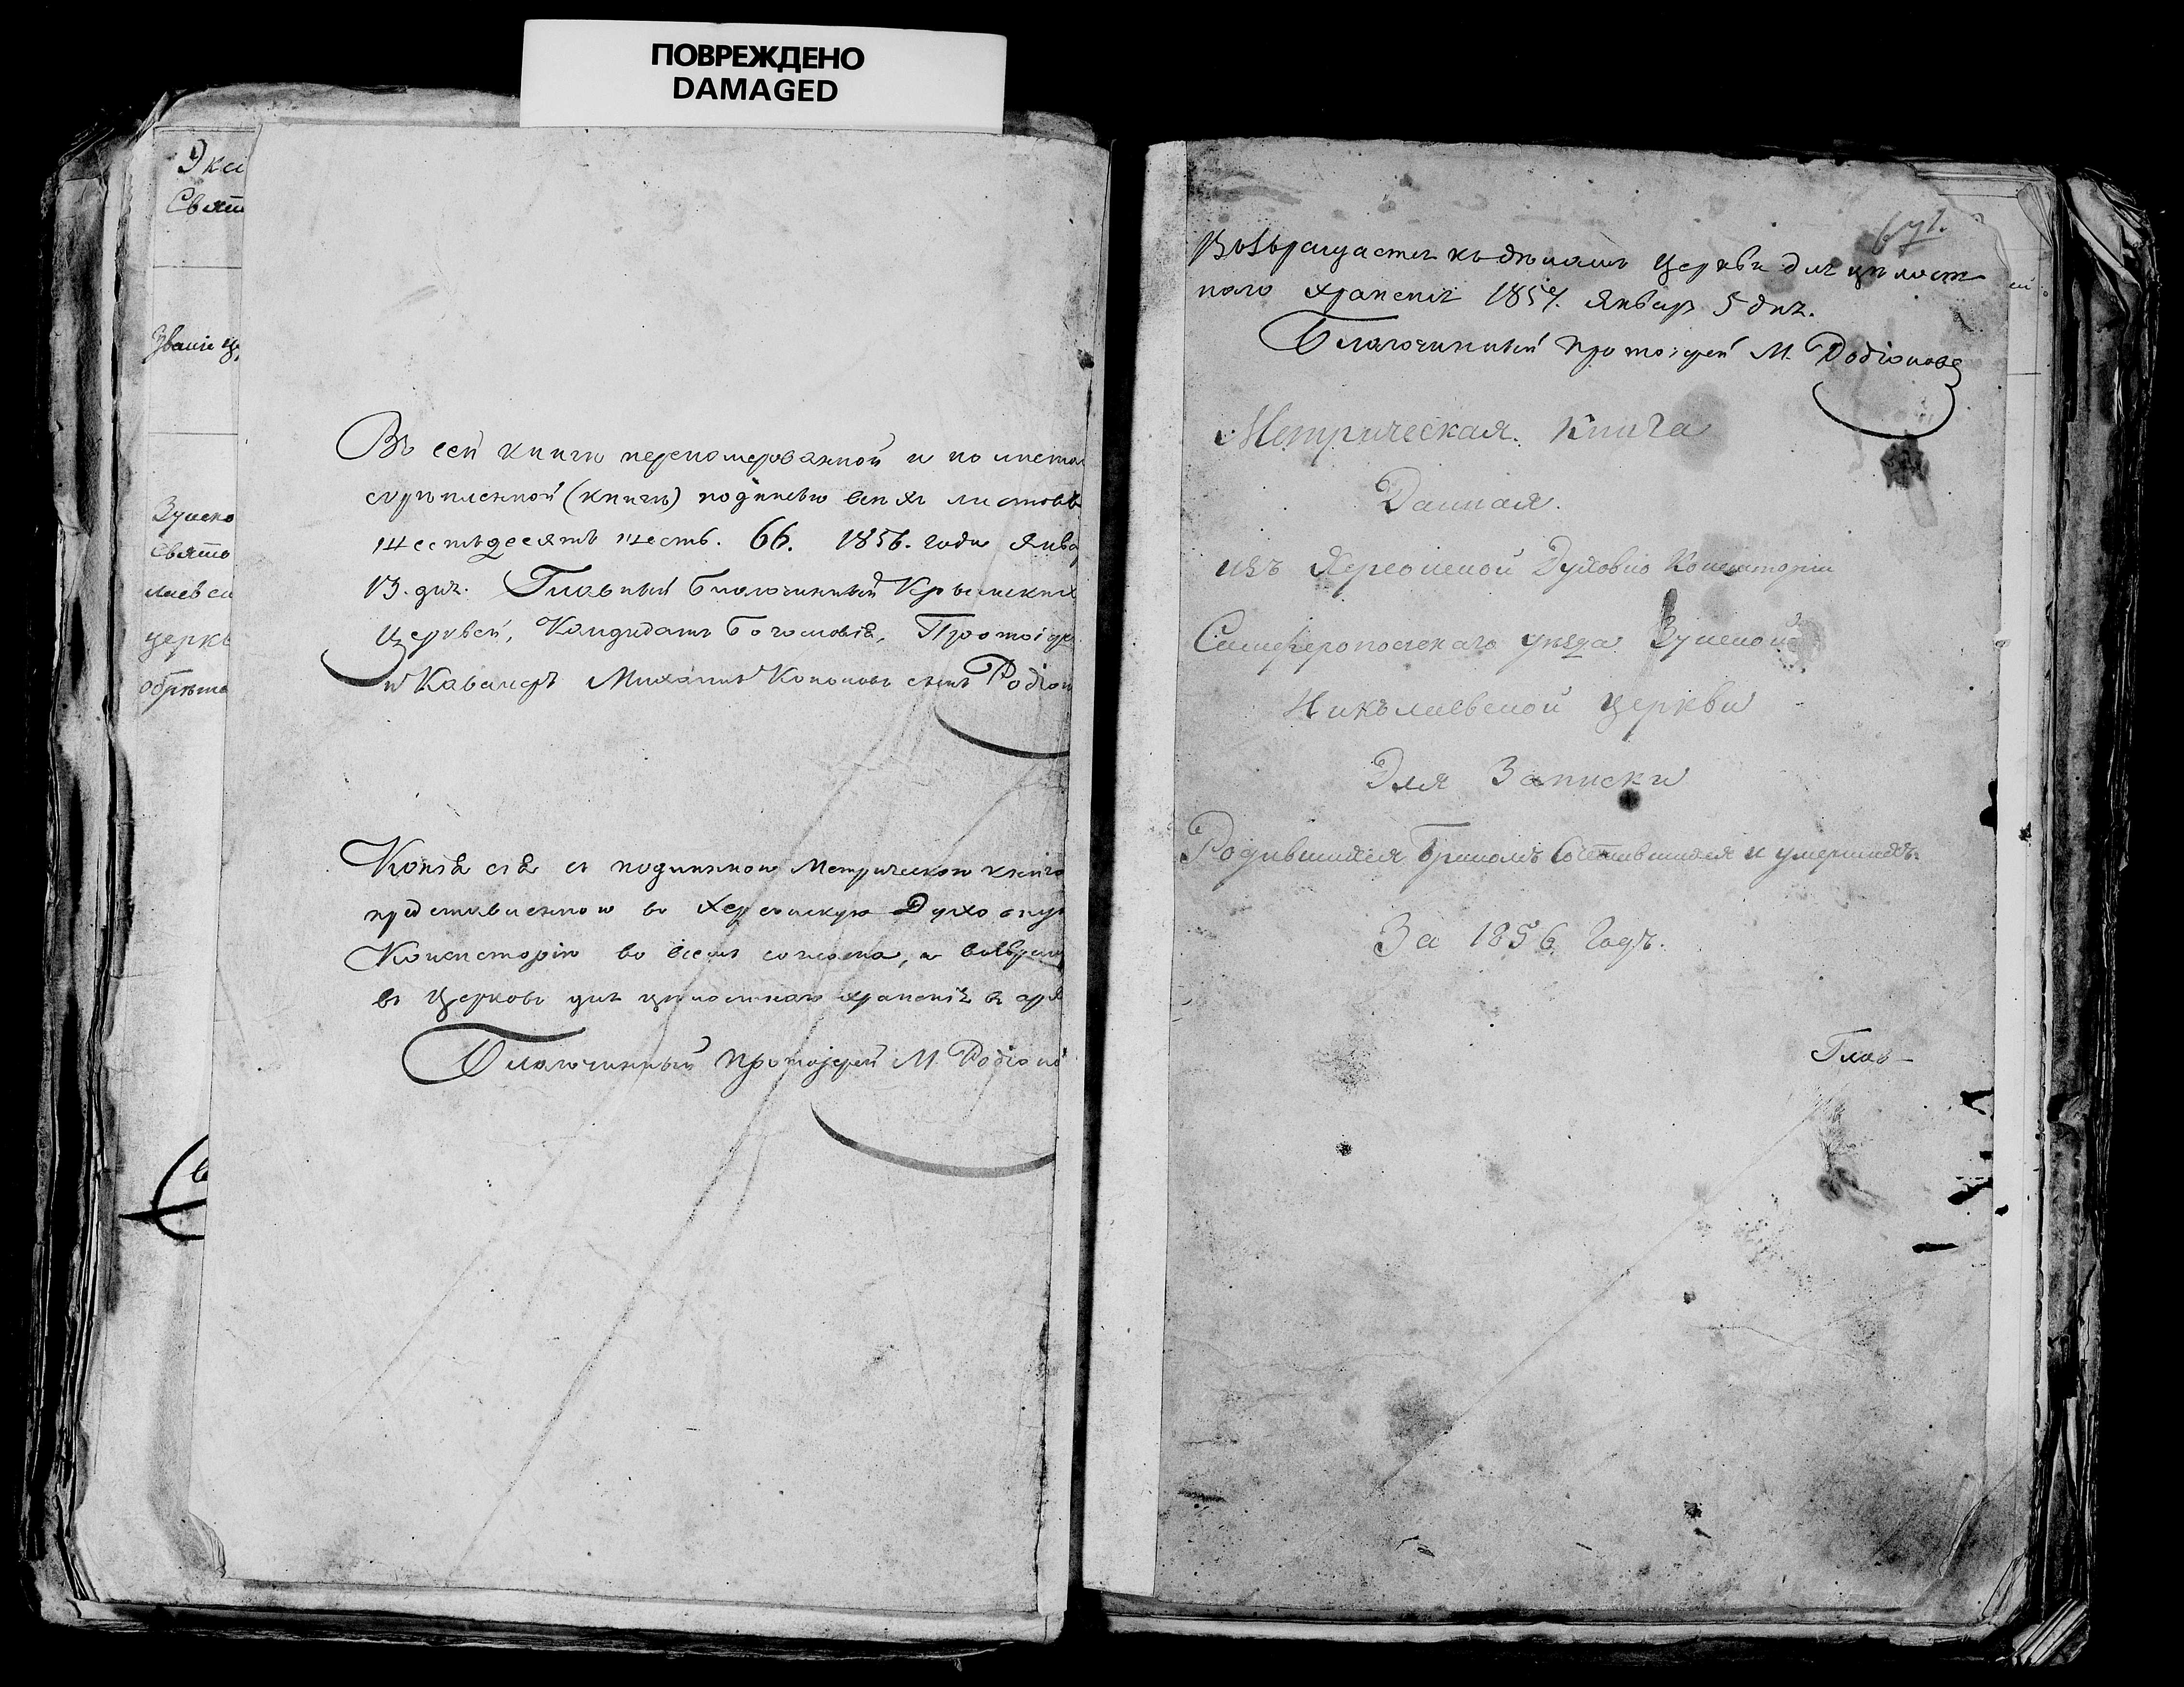 ПОВРЕЖДЕНО
DAMAGED
Экс
Свят
Званіе це
Зуиско
Свято
лаевск
церкв
обрѣта
Въ сей книгѣ переномерованной и по листам
скрѣпленной (книгѣ) подписью всѣхъ листовъ
шестьдесятъ шесть. 66. 1856. года Янва
13. дня. Главный благочинный Крымскихъ
Церквей, Кандидатъ богословія, Протоіер
и Кавалеръ Михаилъ Кононовъ сынъ Родіон
Копія сія съ подлинною Метрическою книго
представленною въ Херсонскую Духовную
Консисторію во всемъ согласна, и возвращ
въ Церковь для цѣлостнаго храненія въ
Благочинный протоіерей М. Родіоно
671.
Возвращается къ дѣламъ Церкви для цѣлост
наго храненія 1857. Января 5 дня.
Благочинный протоіерей М. Родіоновъ
Метрическая. Книга
Данная.
изъ Херсонской Духовно Консисторіи
Симферопольскаго уѣзда Зуиской
Николаевской церкви
Для Записки
Родившихся, бракомъ Сочетавшихся и умершихъ.
За 1856 Годъ.
Глав-